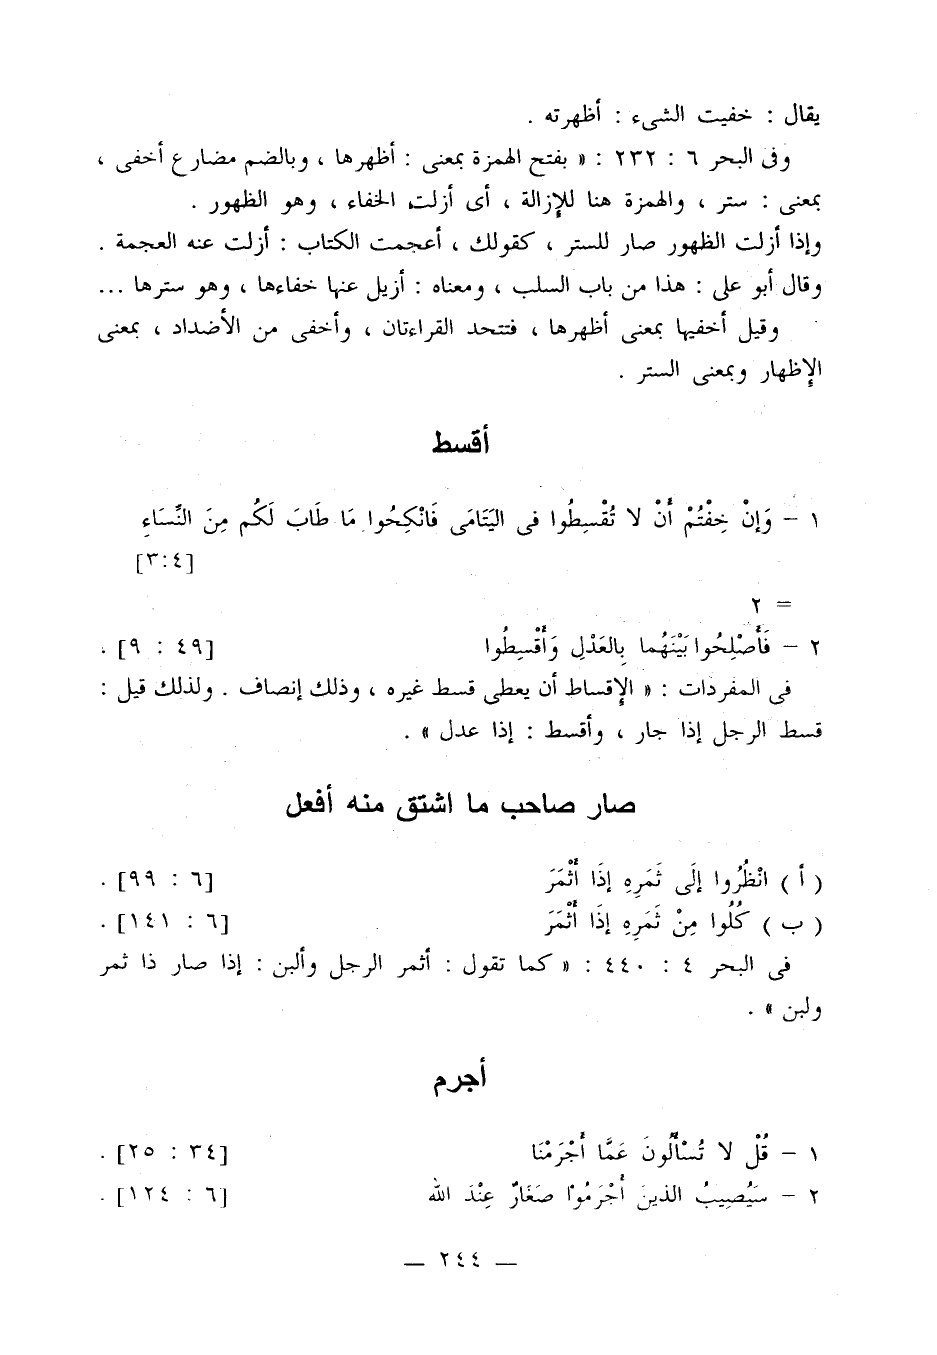 يقال : خفيت الشىء : أظهرته .
وفى البحر ٦ : ٢٣٢ : « بفتح الهمزة بمعنى : أظهرها ، وبالضم مضارع أخفى ،
بمعنى : ستر ، والهمزة هنا للإزالة ، أى أزلت الخفاء ، وهو الظهور .
وإذا أزلت الظهور صار للستر ، كقولك ، أعجمت الكتاب : أزلت عنه العجمة .
وقال أبو على : هذا من باب السلب ، ومعناه : أزيل عنها خفاءها ، وهو سترها ...
وقيل أخفيها بمعنى أظهرها ، فتتحد القراءتان ، وأخفى من الأضداد ، بمعنى
الإظهار وبمعنى الستر .
أقسط
١ – وَإِنْ خِفْتُمْ أَنْ لا تُقْسِطُوا فى اليَتَامَى فَانْكِحُوا مَا طَابَ لَكُم مِنَ النِّسَاءِ
[٣:٤]
= ٢
٢ – فَأَصْلِحُوا بَيْنَهُما بِالعَدْلِ وَأَقْسِطُوا [٤٩ : ٩] .
فى المفردات : « الإقساط أن يعطى قسط غيره ، وذلك إنصاف . ولذلك قيل :
قسط الرجل إذا جار ، وأقسط : إذا عدل » .
صار صاحب ما اشتق منه أفعل
( أ ) انْظُرُوا إِلَى ثَمَرِهِ إِذَا أَثْمَرَ [٦ : ٩٩] .
( ب ) كُلُوا مِنْ ثَمَرِهِ إِذَا أَثْمَرَ [٦ : ١٤١] .
فى البحر ٤ : ٤٤٠ : « كما تقول : أثمر الرجل وألبن : إذا صار ذا ثمر
ولبن » .
أجرم
١ – قُلْ لا تُسْأَلُونَ عَمَّا أَجْرَمْنَا [٣٤ : ٢٥] .
٢ – سَيُصِيبُ الذينَ أَجْرَمُوا صَغَارٌ عِنْدَ الله [٦ : ١٢٤] .
— ٢٤٤ —